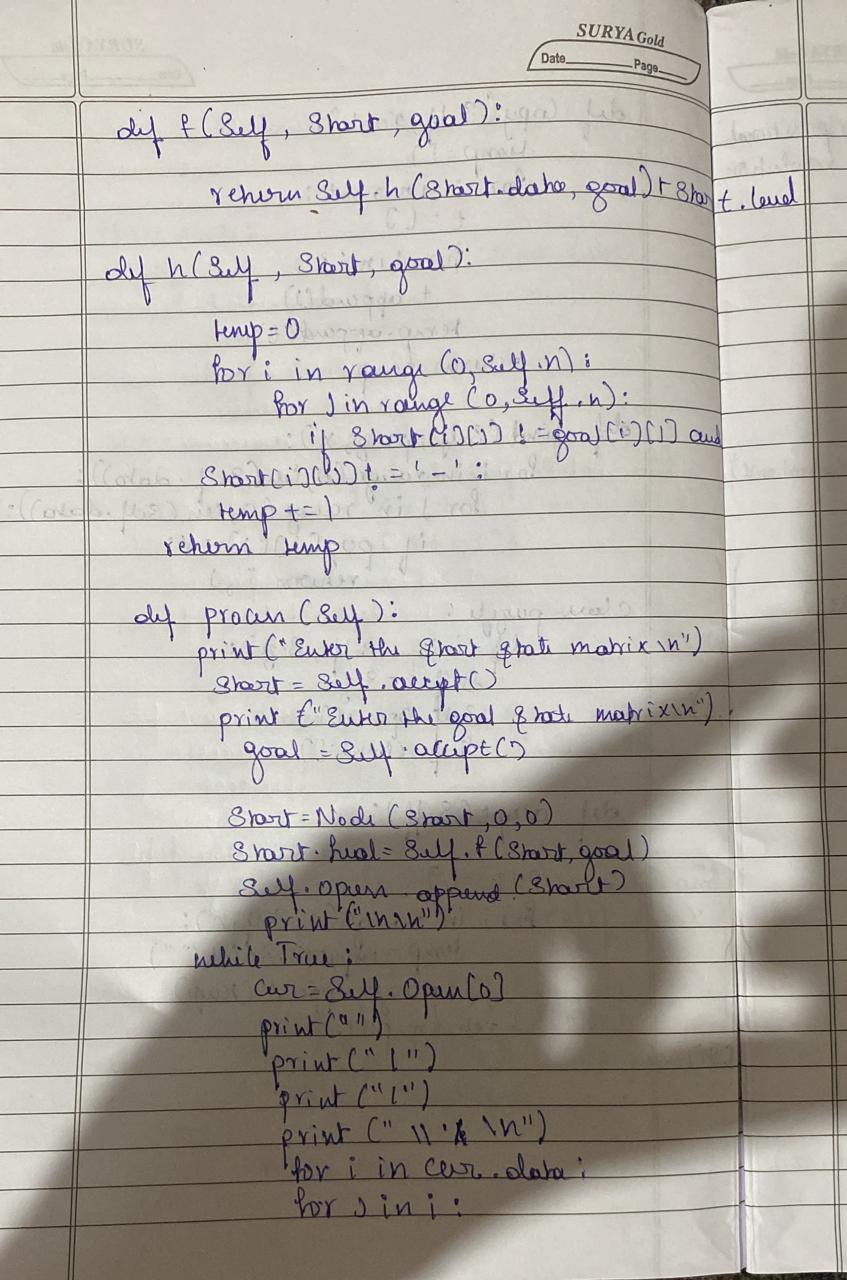 SURYA Gold
Date Page
def f(Self, Start, goal):
return Self.h(Start.data, goal)+ Start.level
def h(Self, Start, goal):
temp=0
for i in range (0, Self.n):
for j in range (0, Self.n):
if Start[i][j] != goal[i][j] and
Start[i][j] != '-':
temp += 1
return temp
def process (Self):
print ("Enter the start state matrix \n")
Start = Self.accept()
print ("Enter the goal state matrix\n")
goal = Self.accept()
Start = Node (Start, 0, 0)
Start.fval = Self.f(Start, goal)
Self.open.append (Start)
print ("\n\n")
while True:
Cur = Self.Open[0]
print ("")
print (" | ")
print (" | ")
print (" \\ ' \n")
for i in cur.data:
for j in i: